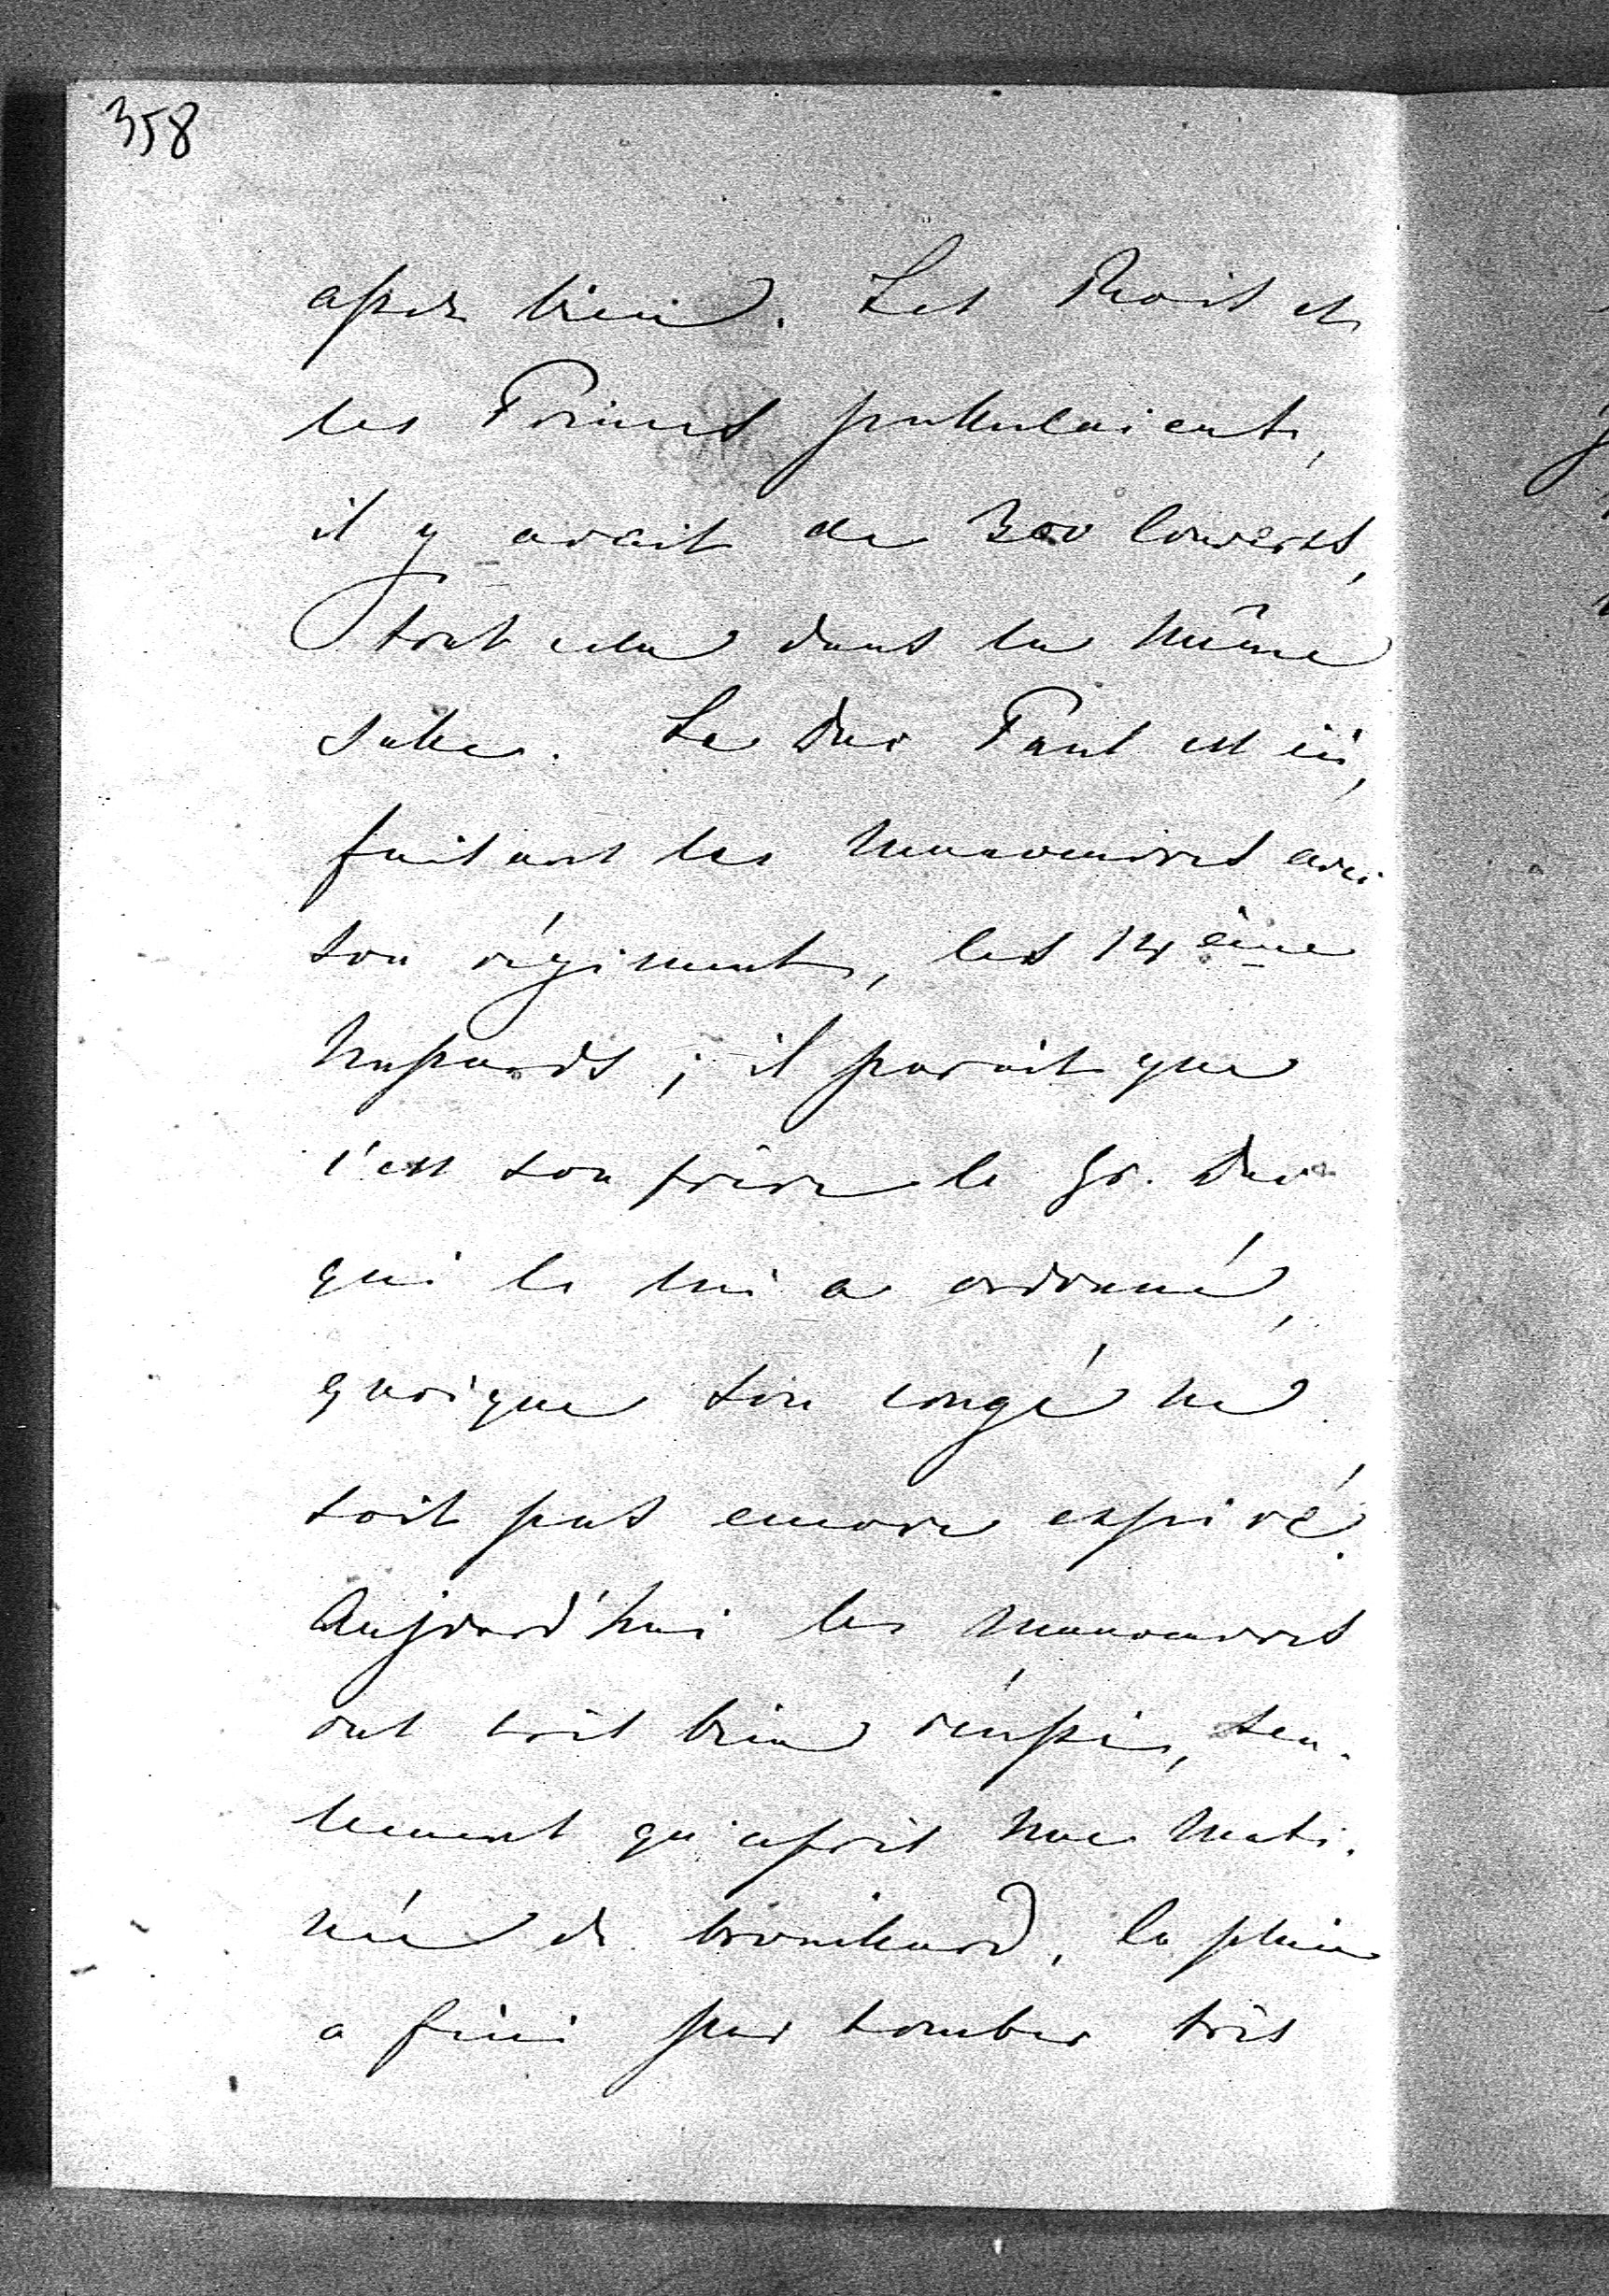 358
assez bien. Les Rois et
les Princes pullulaient,
il y avait de 300 couverts,
tout cela dans la même
salle. Le Duc Paul est ici,
faisant les manoeuvres avec
son régiment, les 14 ème
Hussards ; il paraît que
c'est son frère le Gr. Duc
qui le lui a ordonné,
quoique son congé ne
soit pas encore expiré.
Aujourd'hui les manoeuvres
ont très bien réussies, seu-
lement qu'après une mati-
née de brouillard, la pluie
a fini par tomber très